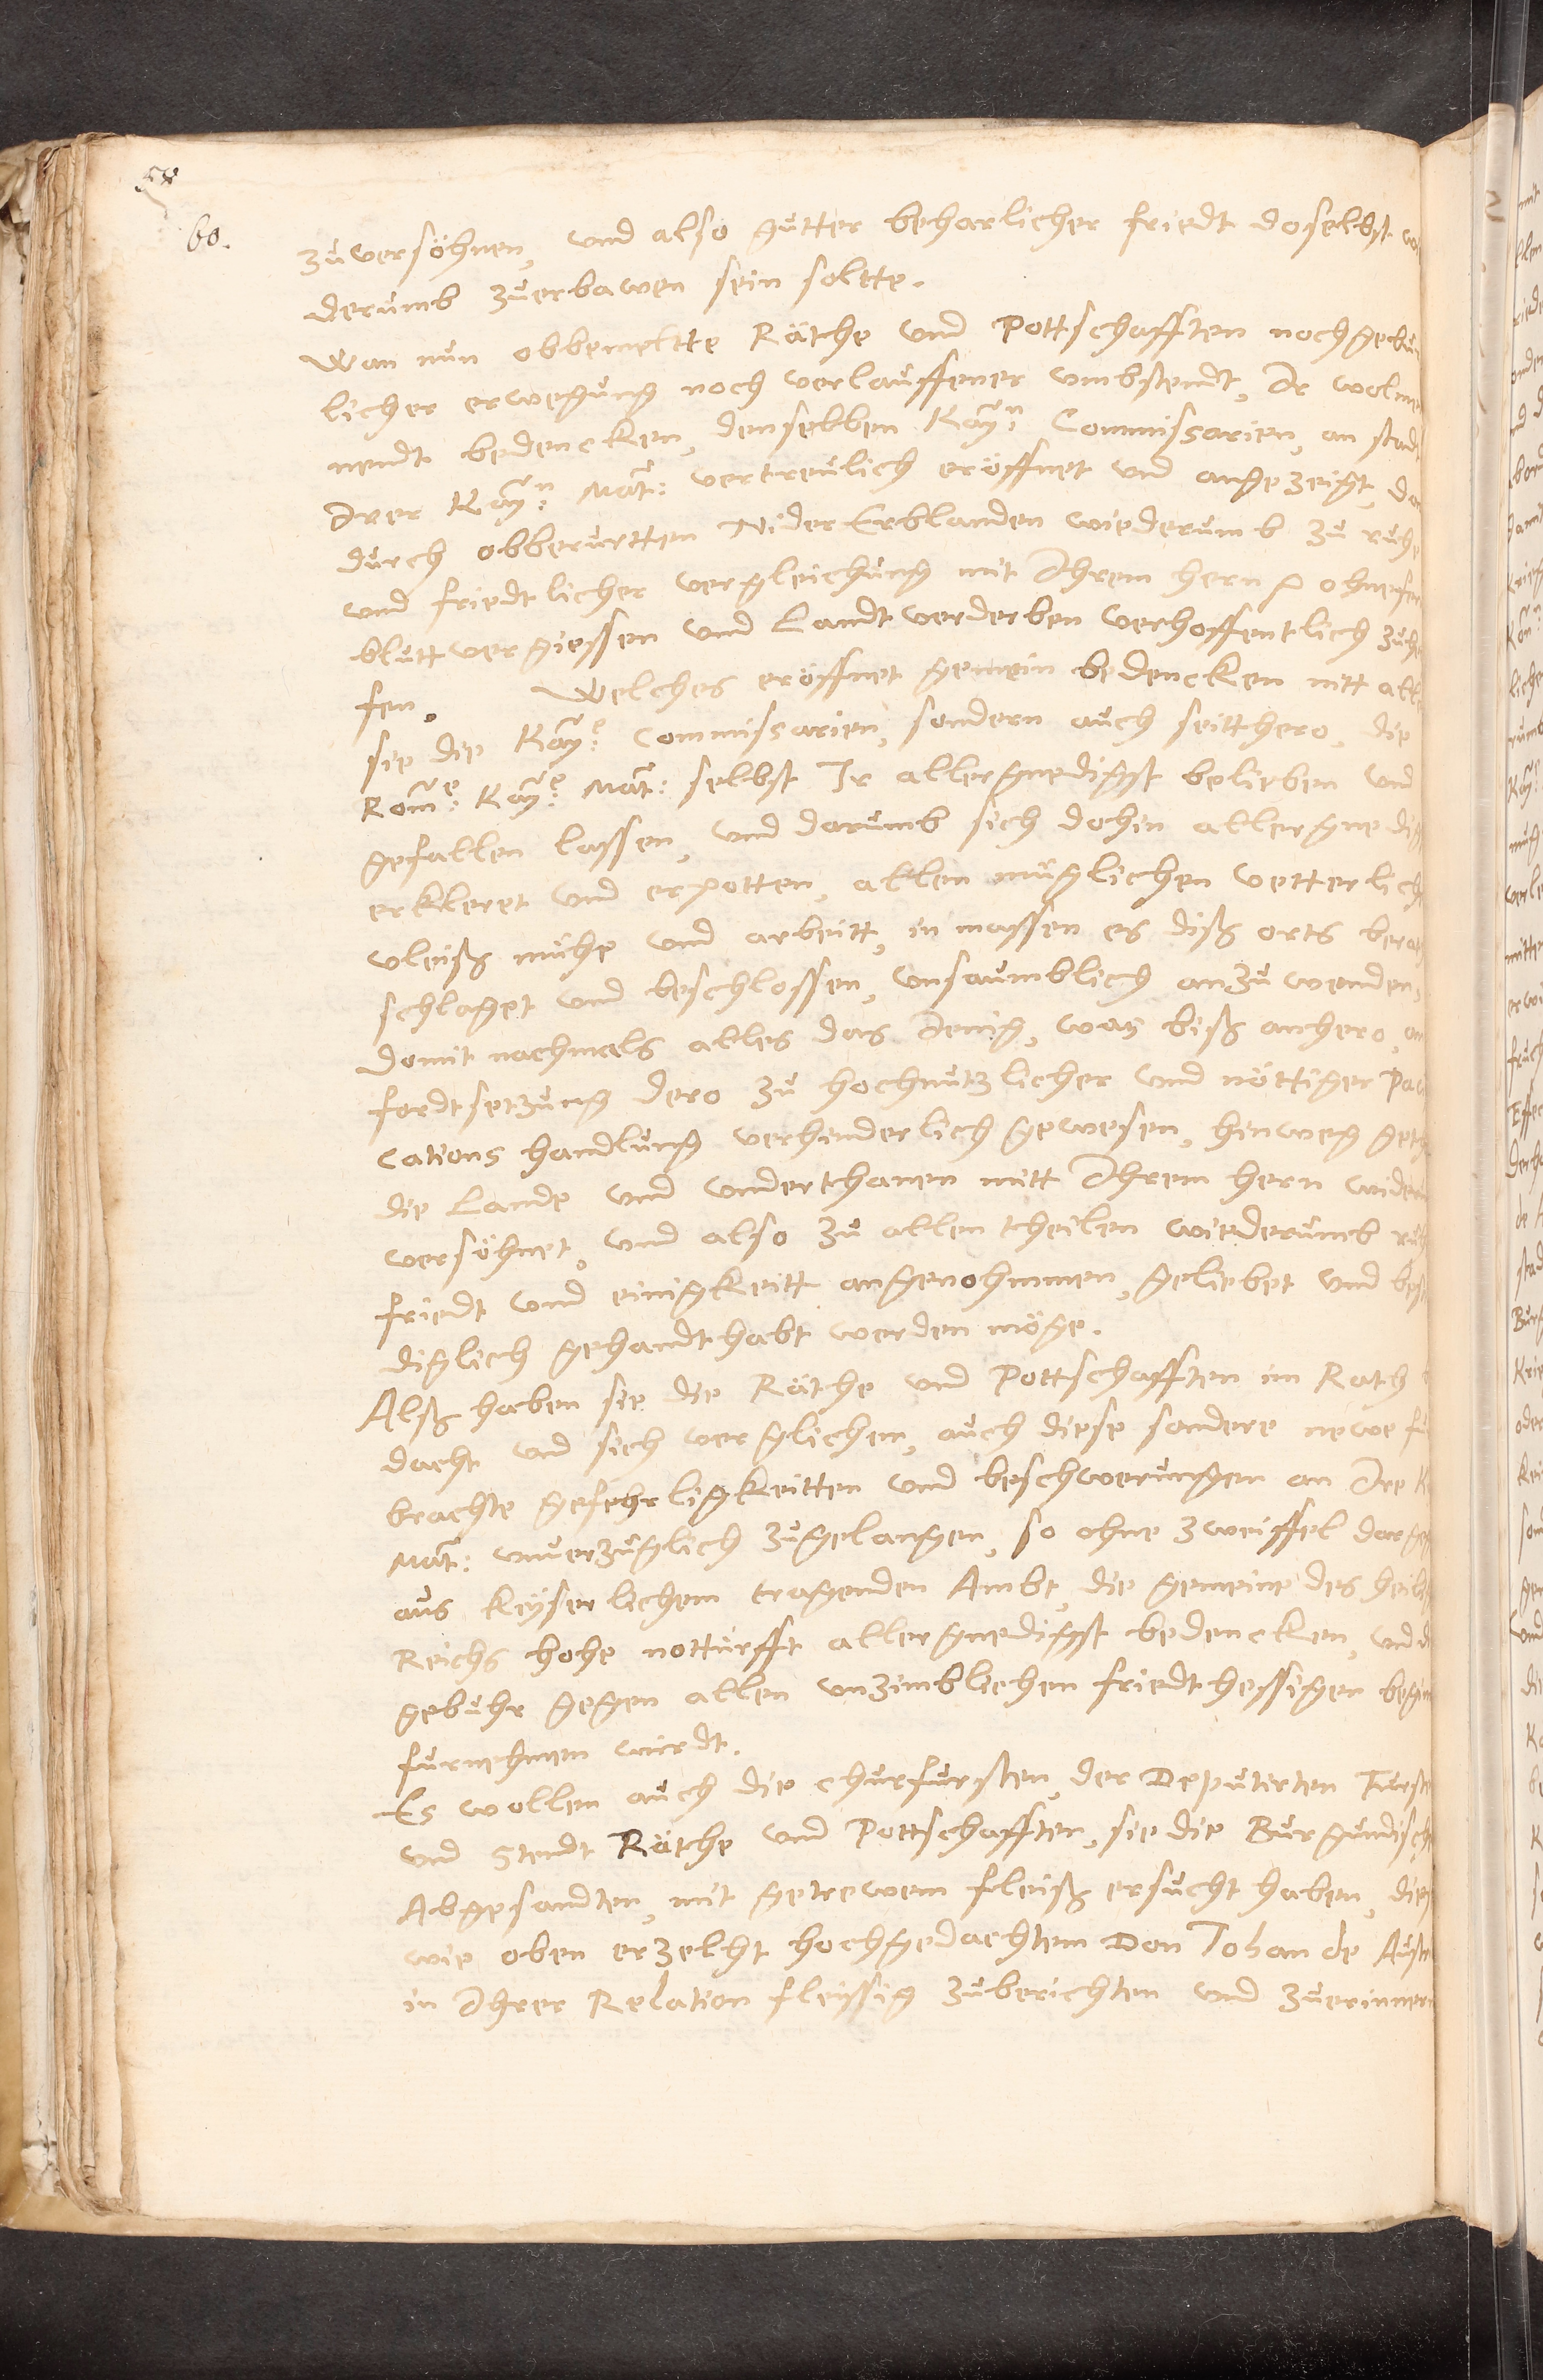 58
60.
zuversöhnen, und also gutter beharlicher friedt doselbst
derumb zuerbawen sein soltte.
Wan nun obbemeltte Räthe und Pottschafften noch gebur
licher erwegung noch verlauffener umbstendt, Ir wolmei
nendt bedencken, denselben Kay:n Commissarien, an stadt
Irer Kay:n Mat: vertreulich eröffnet und angezeigt, da
durch obberurtten Nider Erblanden wiederumb zu ruhe
und friedtlicher vergleichung mit Ihrem hern ohne fer
blutt vergiessen und Landt verderben verhoffentlich zuhe
fen. Welches eröffnet gemein bedencken nitt alle
sie die Kay:e Commissarien, sondern auch seitthero, die
Rom:e Kay:e Mat: selbst Ir allergnedigst belieben und
gefallen lassen, und darumb sich dohin allergnedig
erkleret und erpotten, allen müglichen vetterlich
vleiß mühe und arbeitt, in massen es diß orts berat
schlaget und beschlossen, unsaumblich anzuwenden,
domit nachmals alles das Jenig, was biß anhero, an
fordtsetzung dero zu hochnutzlicher und nöttiger Paci
cations handlung verhinderlich gewesen, hinweg geth
die Lande und underthanen mitt Ihrem hern wider
versöhnet, und also zu allen theilen wiederumb ruh
friedt und einigkeitt angenohmmen, geliebet und best
diglich gehandthabt werden möge.
Alß haben sie die Räthe und Pottschafften im Rath
dacht und sich verglichen, auch diese sondere newe fu
brachte gefehrligkeitten und beschwerungen an Ire K
Mat: unverzuglich zugelangen, so ohne zweiffel darge
aus Keyserlichem tragenden Ambt, die gemeine des heili
Reichs hohe notturfft allergnedigst bedencken, und d
gebuhr gegen allen unzimblichen friedthessigen begin
furnehmen wirdt.
Es wollen auch die Churfursten, der Deputirten Furste
und Stendt Räthe und Pottschafften, sie die Burgundisch
Abgesandten, mit getrewem fleiß ersucht haben, dies
wie oben erzelht hochgedachtem Don Johan de Aust
in Ihrer Relation fleissig zuberichten und zuerinnern